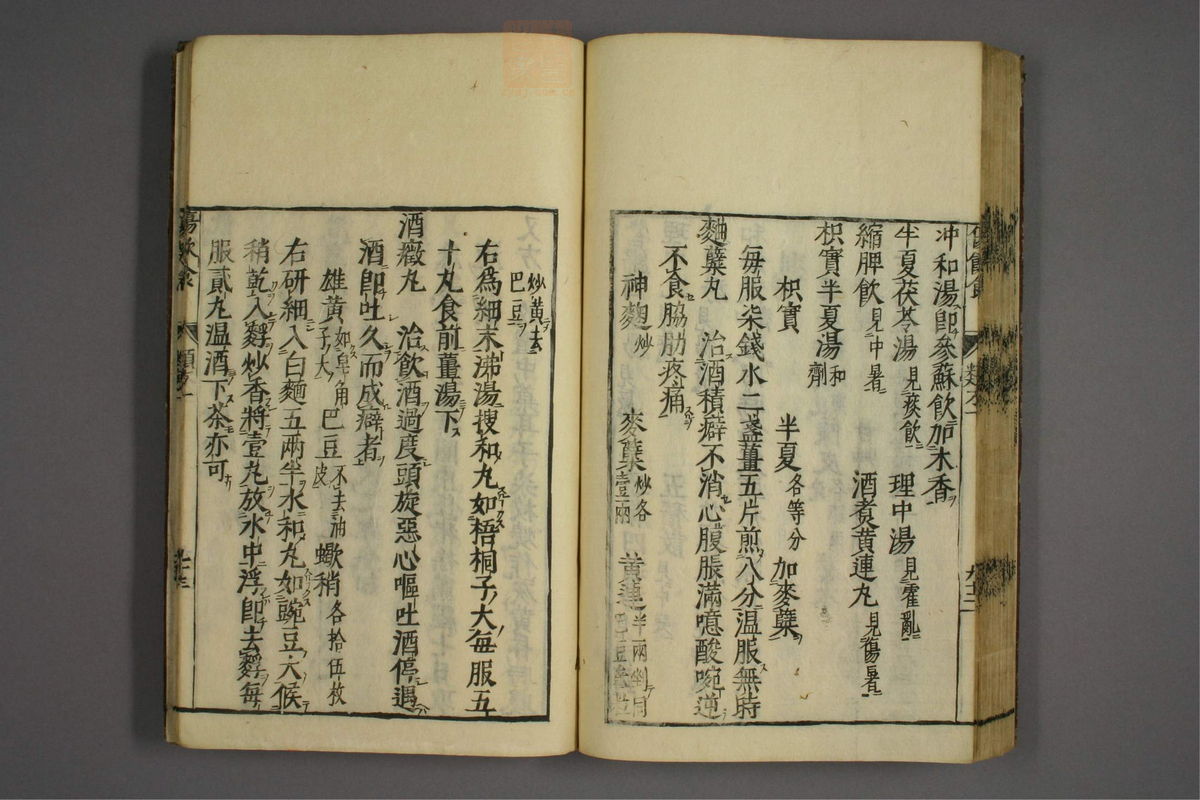 冲和湯即參蘇飲加木香
半夏茯苓湯見痰飲 理中湯見霍亂
縮脾飲見中暑 酒煮黄連丸見傷暑
枳實半夏湯和劑
枳實 半夏各等分 加麥蘖
毎服柒錢水二盞薑五片煎八分温服無時
麯蘖丸 治酒積癖不消心腹脹滿噫酸啘逆
不食脇肋疼痛
神麯炒 麥蘖炒各壹兩 黄連半兩剉同
炒黄去巴豆
右爲細末沸湯搜和丸如梧桐子大毎服五
十丸食前薑湯下
酒癥丸 治飲酒過度頭旋惡心嘔吐酒停遇
酒卽吐久而成癖者
雄黄如皂角子大 巴豆不去油皮 蠍稍各拾伍枚
右研細入白麵五兩半水和丸如豌豆大候
稍乾入麩炒香將壹丸放水中浮卽去麩毎
服貳丸温酒下茶亦可